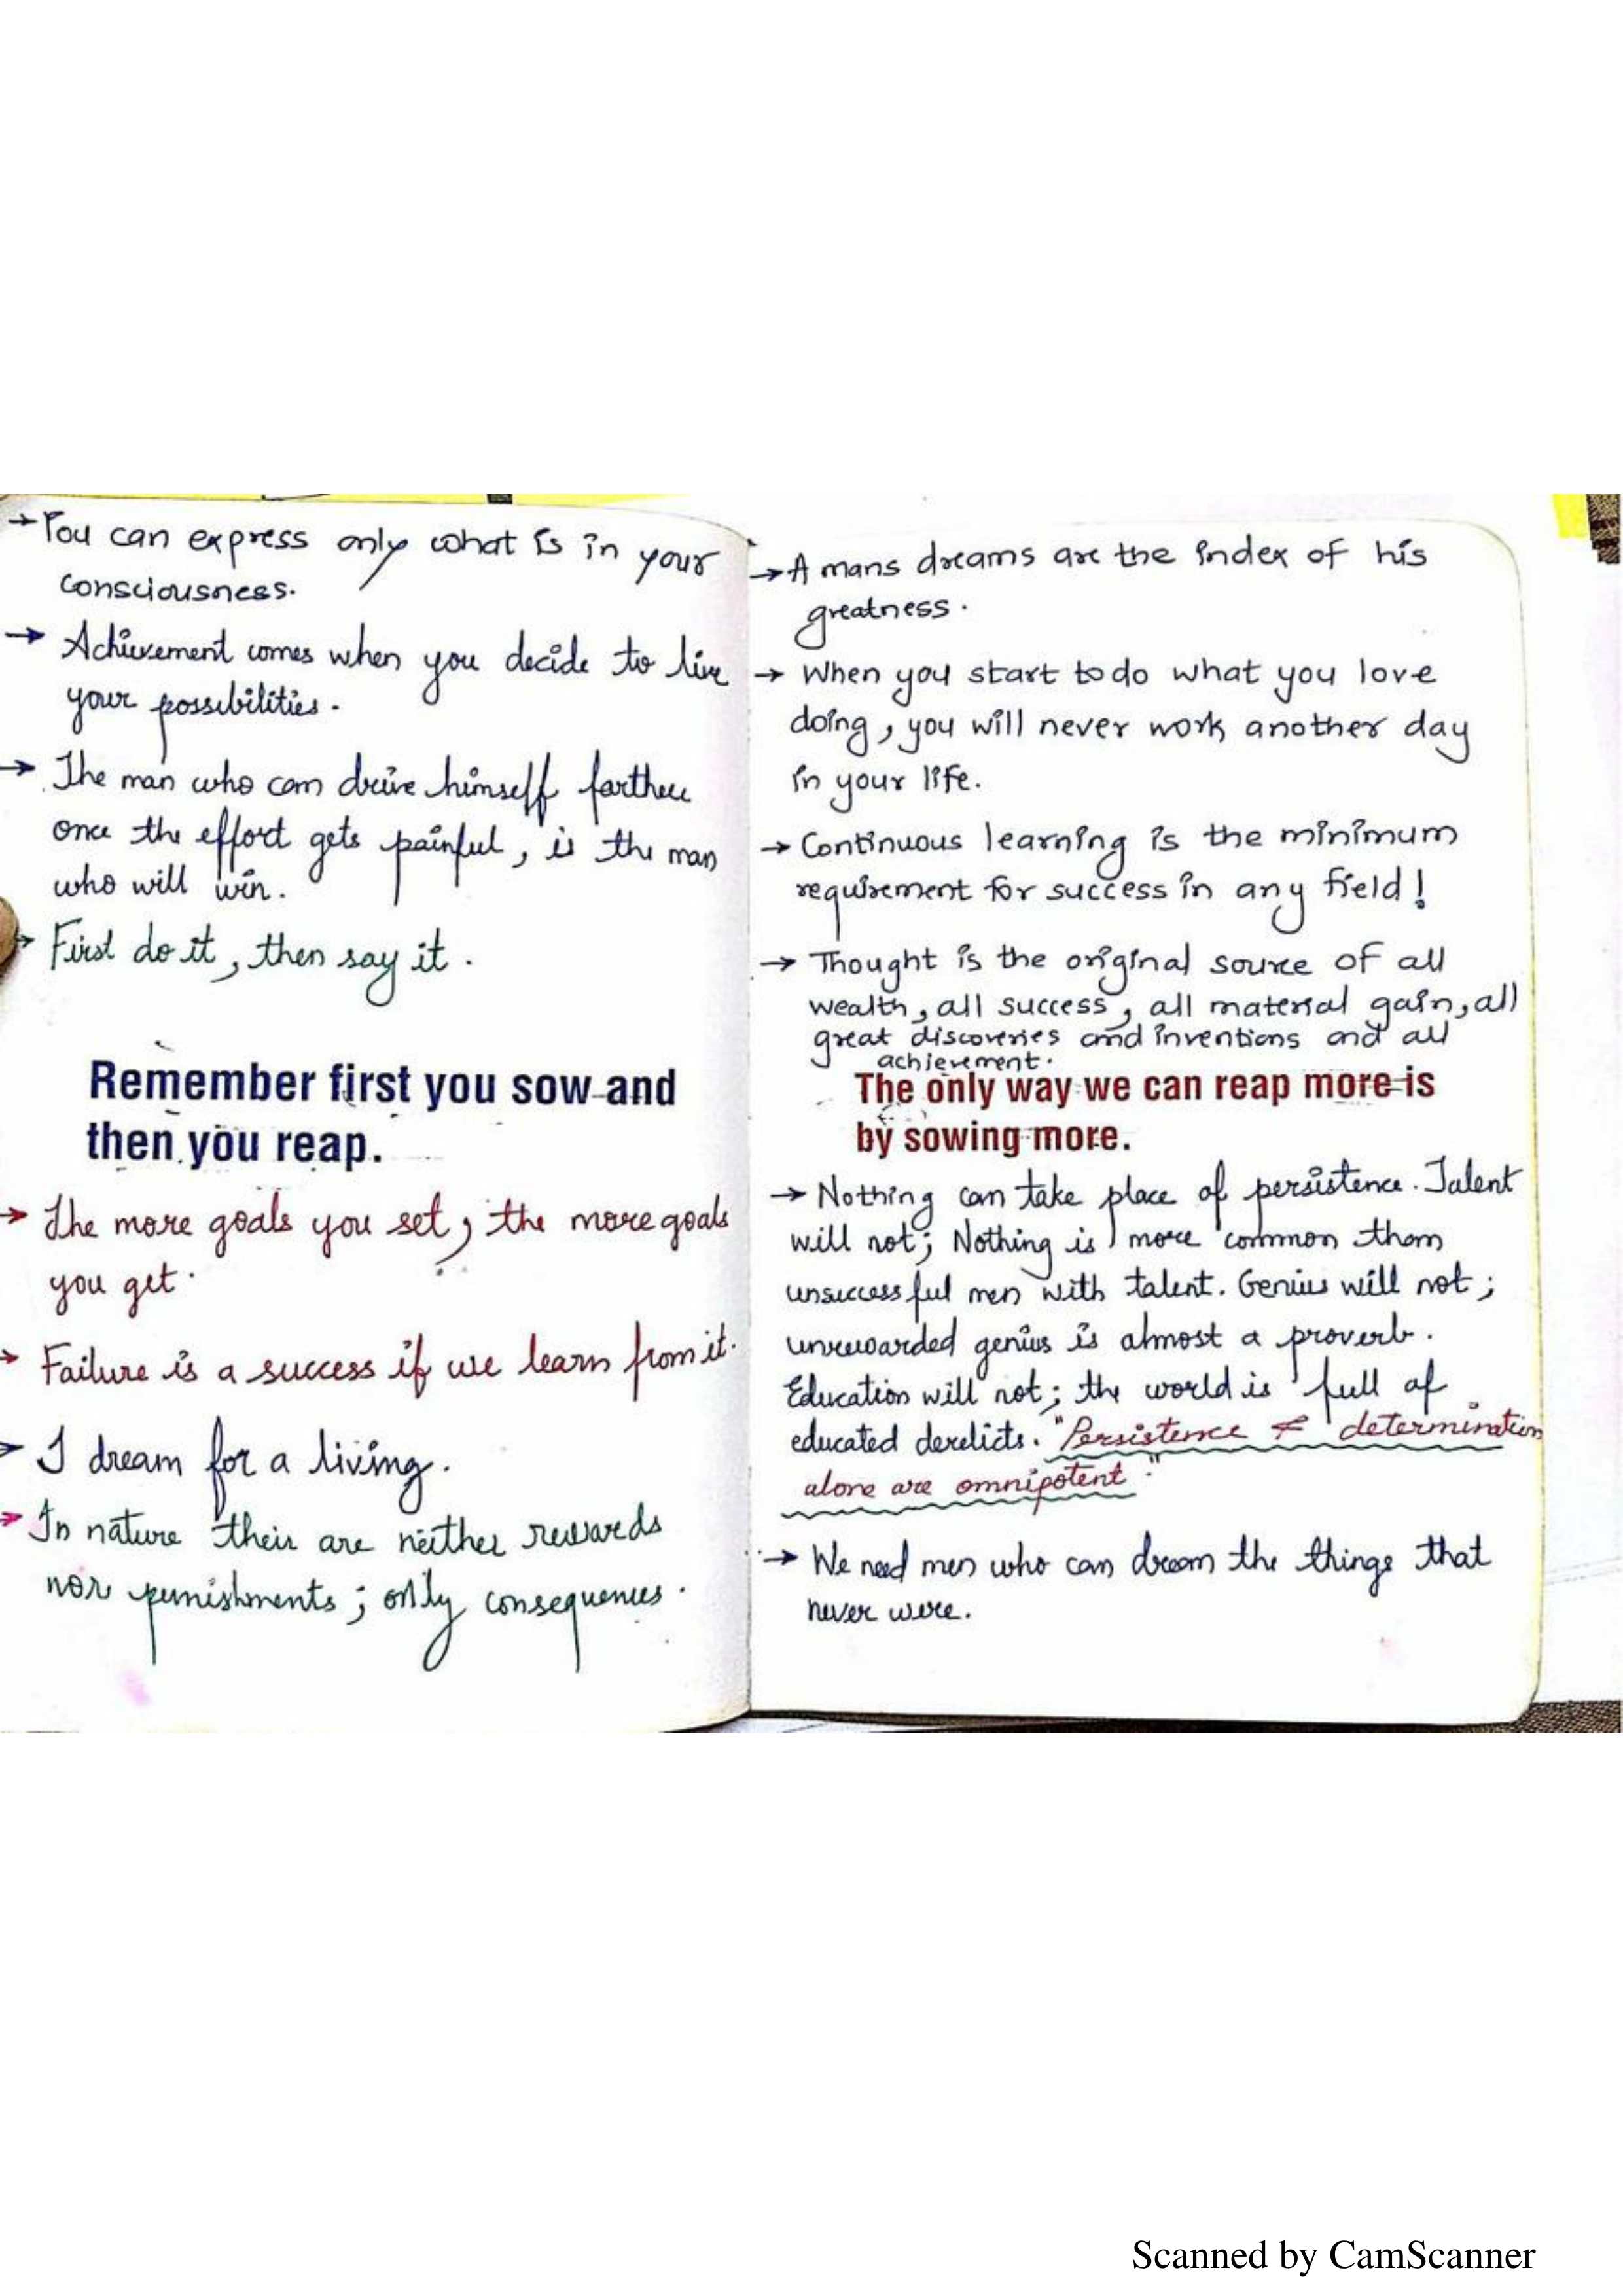 → You can express only what is in your
consciousness.
→ Achievement comes when you decide to live
your possibilities.
→ The man who can drive himself farther
once the effort gets painful, is the man
who will win.
→ First do it, then say it.
Remember first you sow and
then you reap.
→ The more goals you set, the more goals
you get.
→ Failure is a success if we learn from it.
→ I dream for a living.
→ In nature their are neither rewards
nor punishments; only consequences.
→ A mans dreams are the index of his
greatness.
→ When you start to do what you love
doing, you will never work another day
in your life.
→ Continuous learning is the minimum
requirement for success in any field!
→ Thought is the original source of all
wealth, all success, all material gain, all
great discoveries and inventions and all
achievement.
The only way we can reap more is
by sowing more.
→ Nothing can take place of persistence. Talent
will not; Nothing is more common than
unsuccessful men with talent. Genius will not;
unrewarded genius is almost a proverb.
Education will not; the world is full of
educated derelicts. "Persistence & determination
alone are omnipotent."
→ We need men who can dream the things that
never were.
Scanned by CamScanner